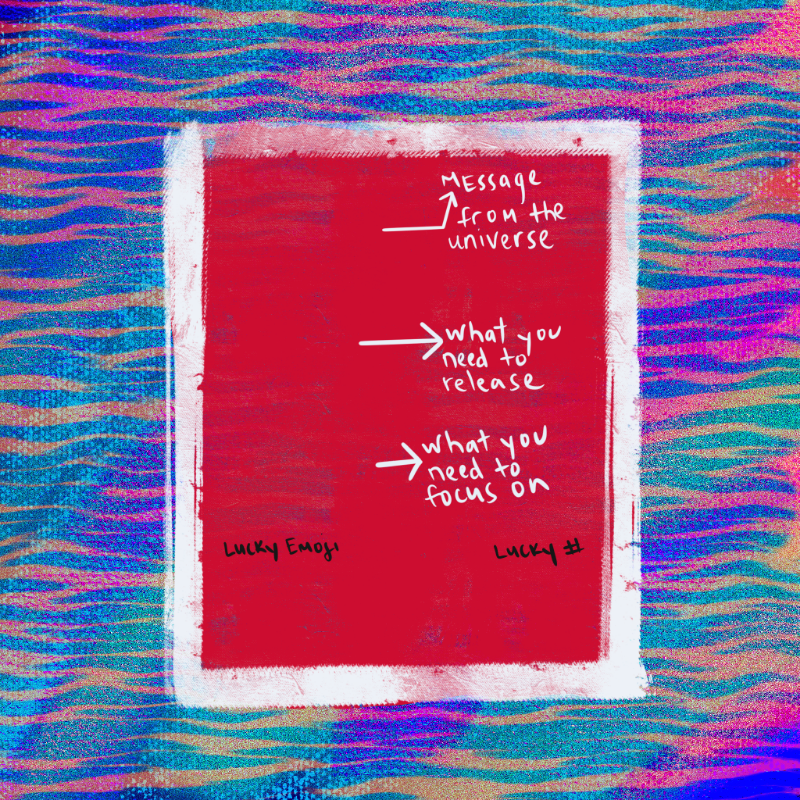 Message
from the
universe
what you
need to
release
what you
need to
focus on
Lucky Emoji
Lucky #